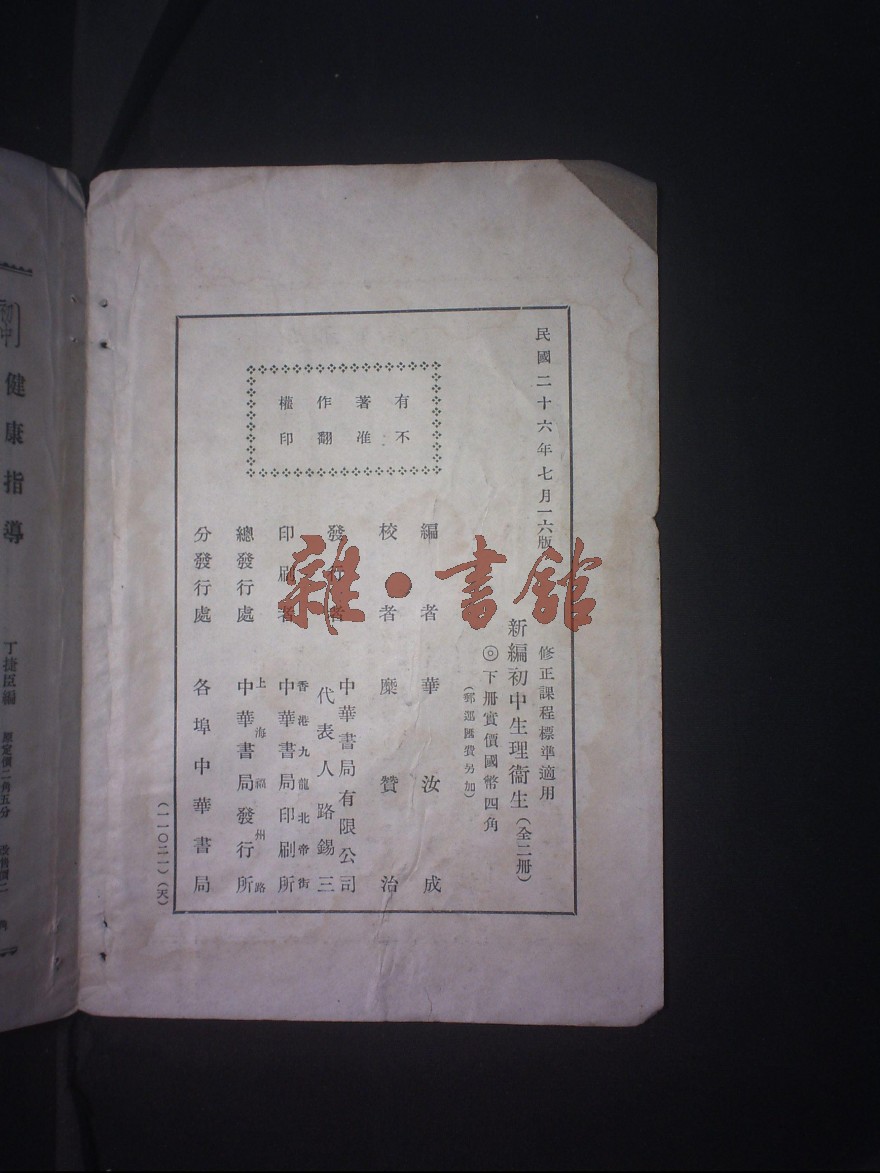 民國二十六年七月一六版
修正課程標準適用
新編初中生理衞生(全二冊)
◎下冊實價國幣四角
(郵運匯費另加)
有著作權
不准翻印
編者 華汝成
校者 糜贊治
發行者 中華書局有限公司
代表人路錫三
印刷者 香港九龍北帝街
中華書局印刷所
總發行處 上海福州路
中華書局發行所
分發行處 各埠中華書局
(一一〇二一)(天)
雜·書館
初中
健康指導
丁捷臣編
原定價二角五分